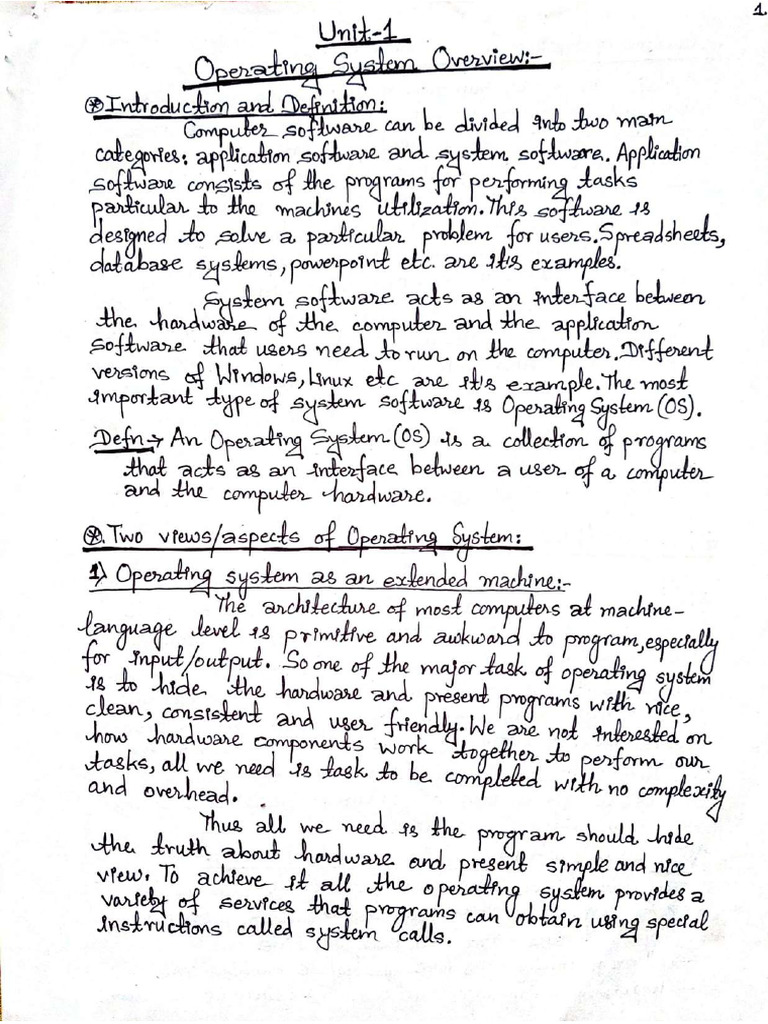 1.
Unit-1
Operating System Overview:-
⊛ Introduction and Definition:
Computer software can be divided into two main
categories: application software and system software. Application
software consists of the programs for performing tasks
particular to the machines utilization. This software is
designed to solve a particular problem for users. Spreadsheets,
database systems, powerpoint etc. are it's examples.
System software acts as an interface between
the hardware of the computer and the application
software that users need to run on the computer. Different
versions of Windows, Linux etc are it's example. The most
important type of system software is Operating System (OS).
Defn → An Operating System (OS) is a collection of programs
that acts as an interface between a user of a computer
and the computer hardware.
⊛. Two views/aspects of Operating System:
1) Operating system as an extended machine:-
The architecture of most computers at machine-
language level is primitive and awkward to program, especially
for input/output. So one of the major task of operating system
is to hide the hardware and present programs with nice,
clean, consistent and user friendly. We are not interested on
how hardware components work together to perform our
tasks, all we need is task to be completed with no complexity
and overhead.
Thus all we need is the program should hide
the truth about hardware and present simple and nice
view. To achieve it all the operating system provides a
variety of services that programs can obtain using special
instructions called system calls.